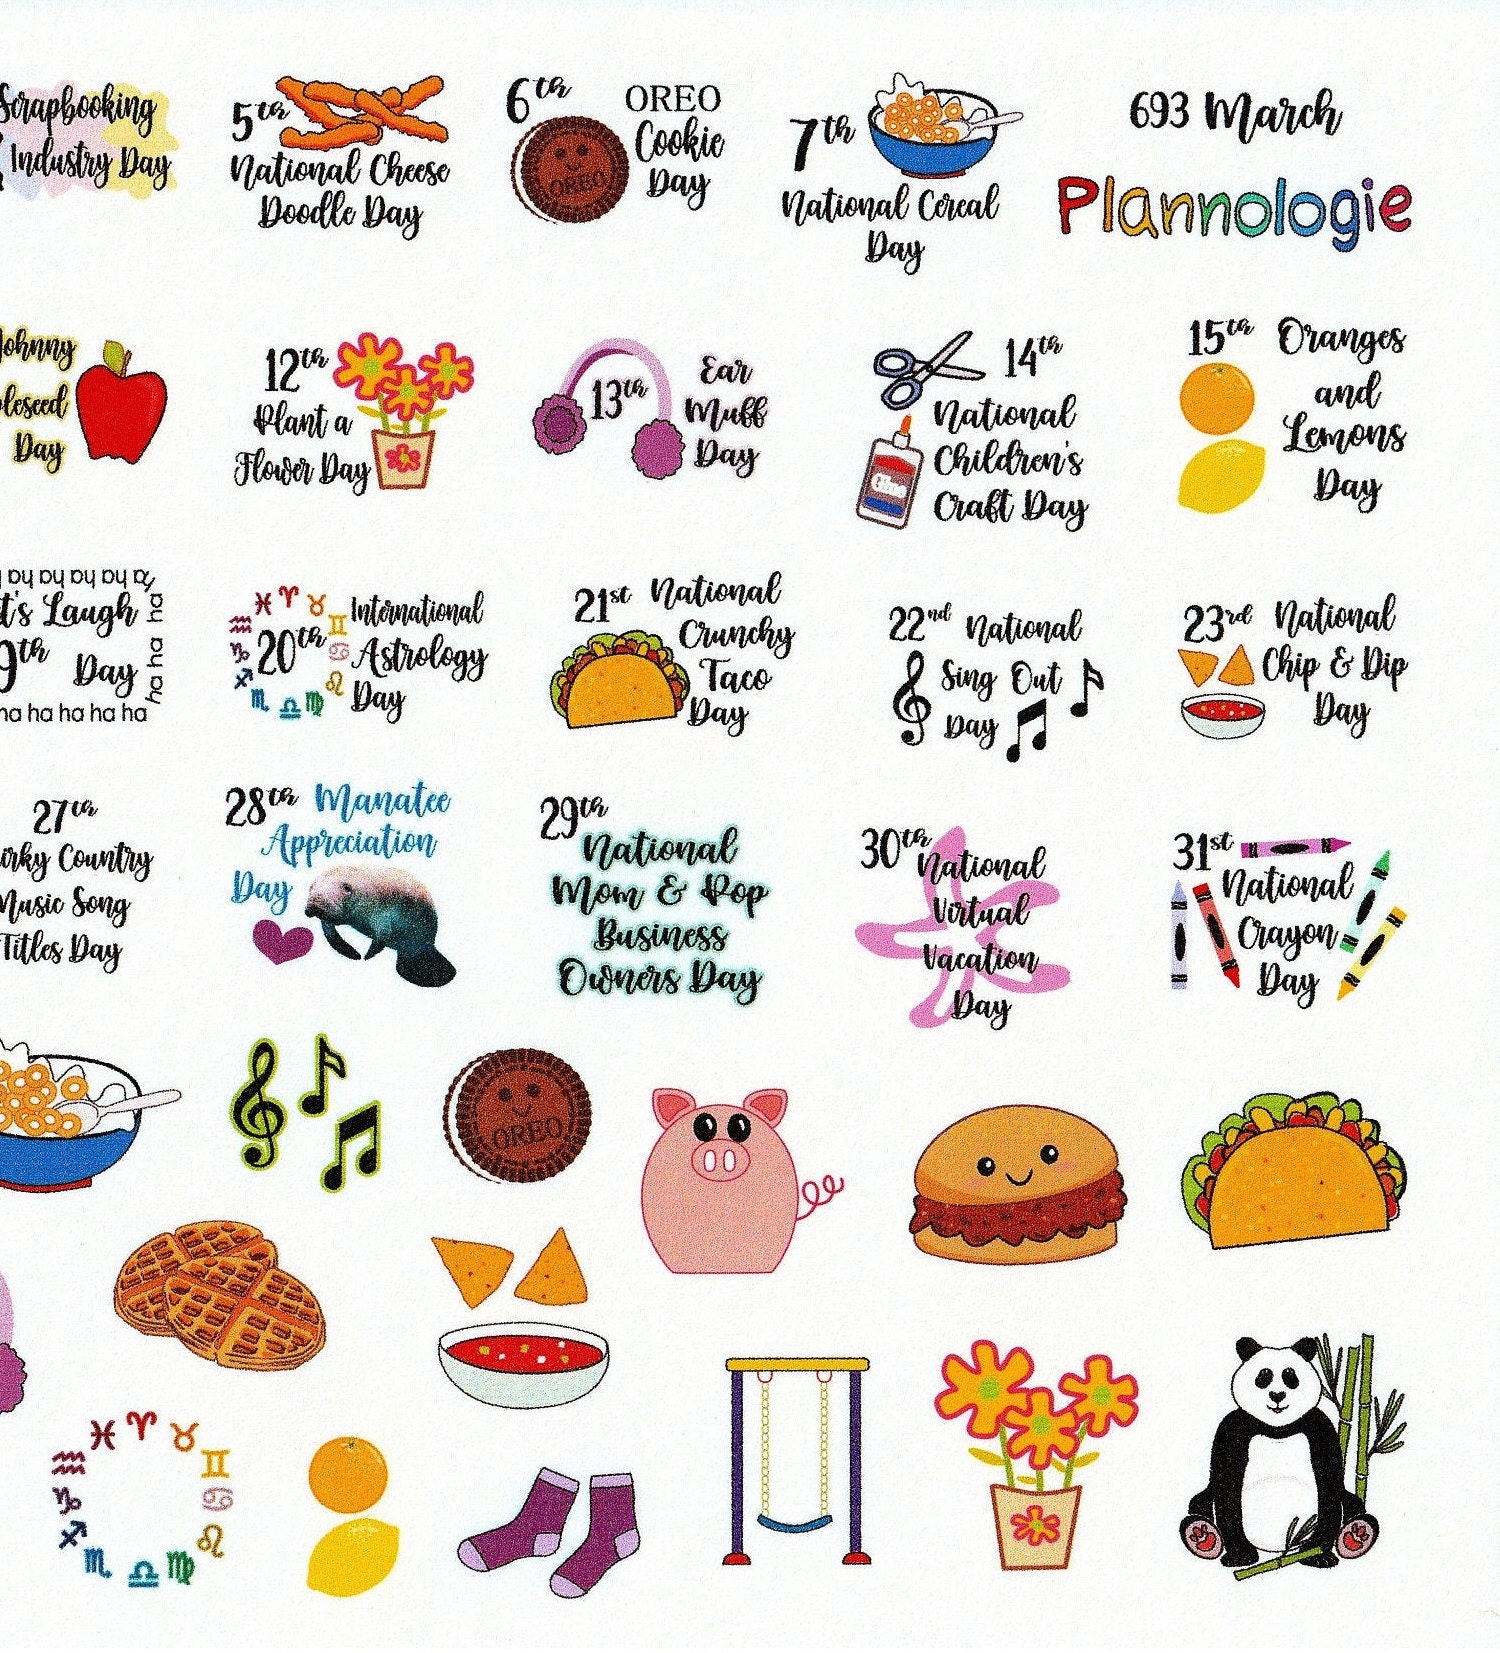 Scrapbooking
Industry Day
5th
National Cheese
Doodle Day
6th OREO
Cookie
Day
OREO
7th
National Cereal
Day
693 March
Plannologie
Johnny
Day
12th
Plant a
Flower Day
13th
Ear
Muff
Day
14th
National
Children's
Craft Day
Glue
15th Oranges
and
Lemons
Day
ha ha ha ha ha
Laugh
Day
ha ha ha
ha ha ha ha ha
20th International
Astrology
Day
21st National
Crunchy
Taco
Day
22nd National
Sing Out
Day
23rd National
Chip & Dip
Day
27th
Country
Music Song
Titles Day
28th Manatee
Appreciation
Day
29th
National
Mom & Pop
Business
Owners Day
30th
National
Virtual
Vacation
Day
31st
National
Crayon
Day
OREO